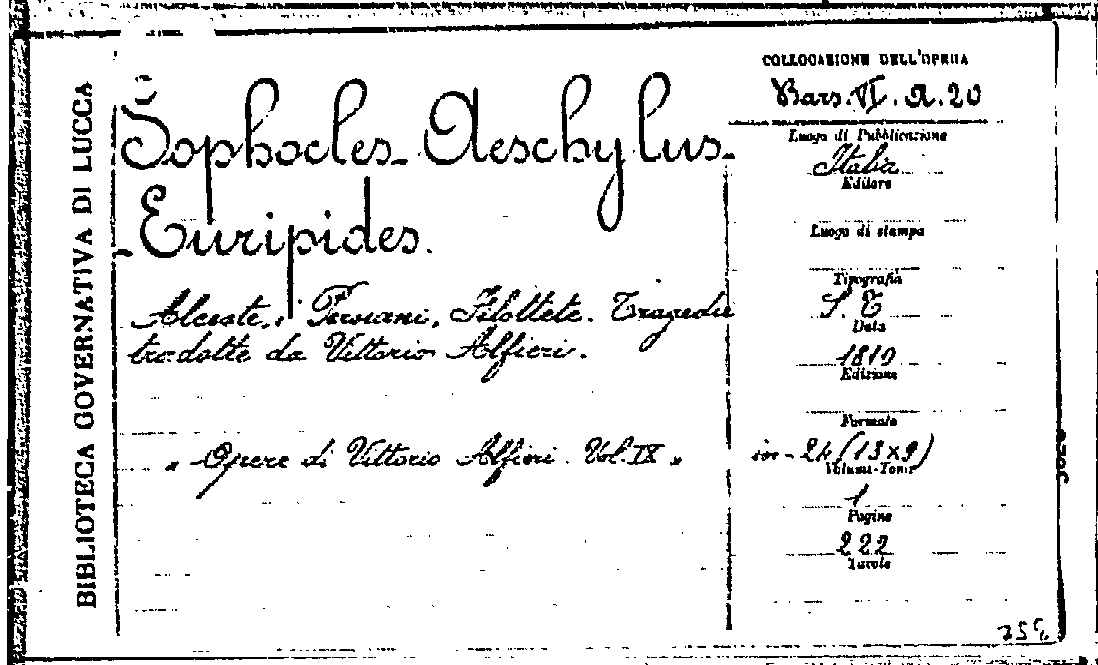 BIBLIOTECA GOVERNATIVA DI LUCCA
Sophocles - Aeschylus -
- Euripides.
Alceste, i Persiani, Filottete. Tragedie
tradotte da Vittorio Alfieri.
" Opere di Vittorio Alfieri. Vol. IX "
COLLOCAZIONE DELL'OPERA
Bars. VI. A. 20
Luogo di Pubblicazione
Italia
Editore
Luogo di stampa
Tipografia
S. T
Data
1810
Edizione
Formato
in-24 (13x9)
Volumi-Tomi
1
Pagine
222
Tavole